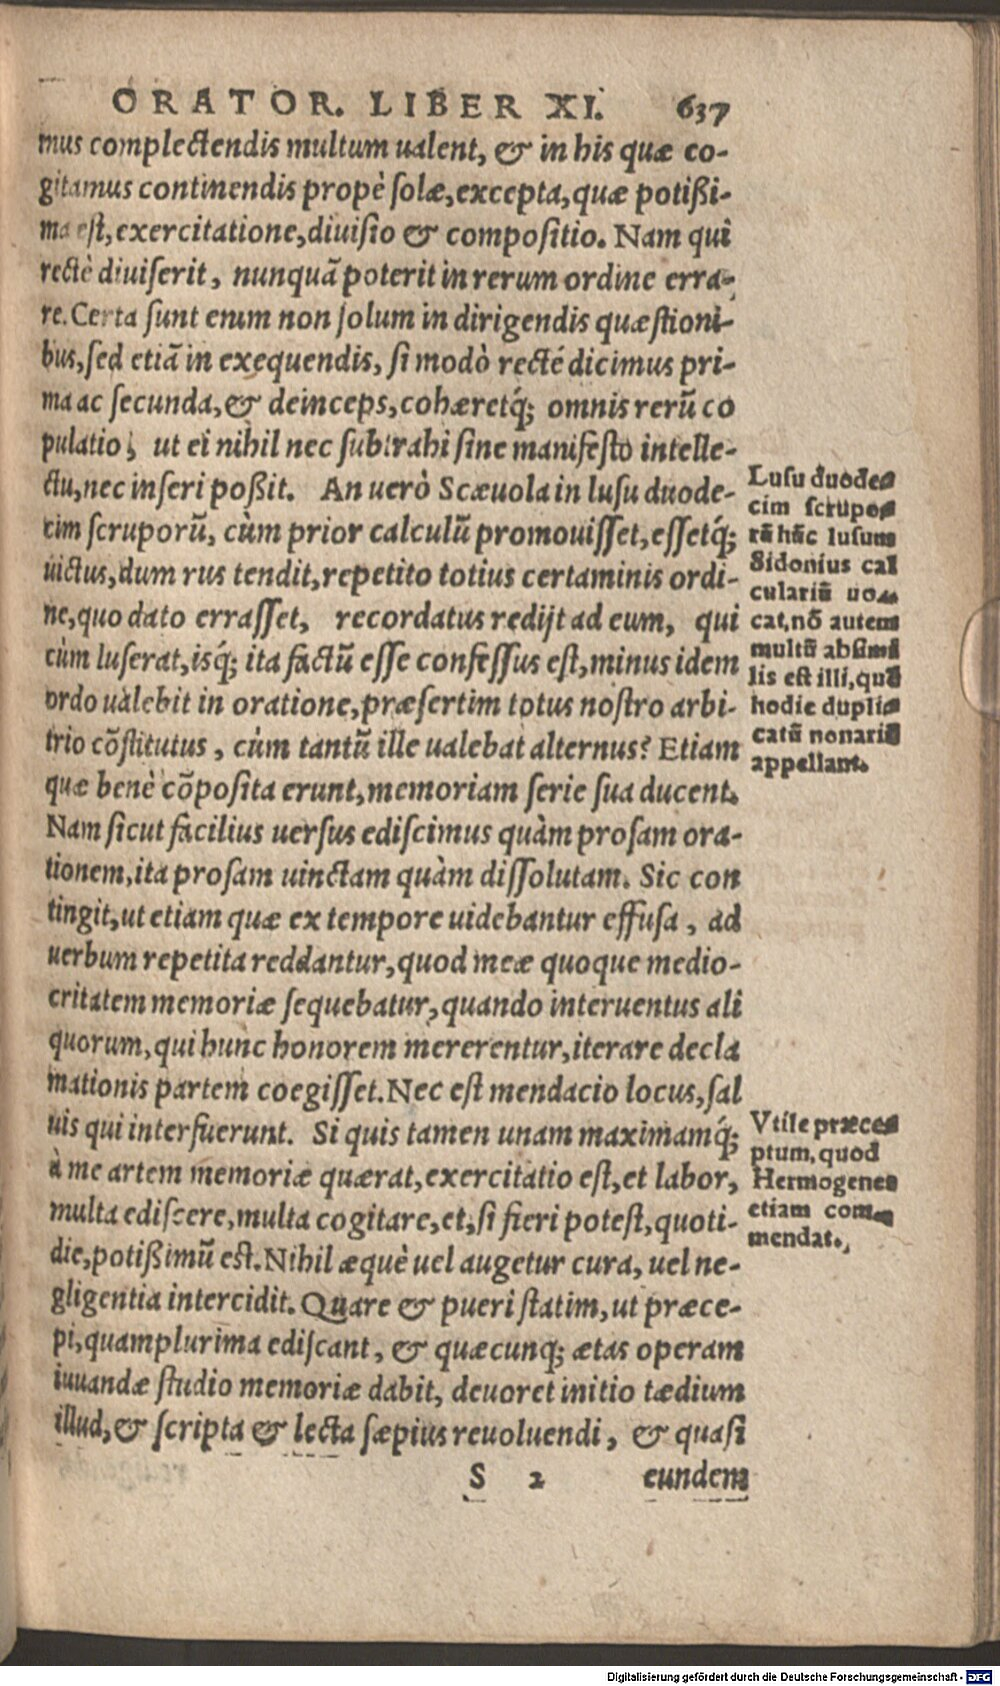 ORATOR. LIBER XI. 637
mus complectendis multum ualent, & in his quæ co-
gitamus continendis propè solæ, excepta, quæ potißi-
ma est, exercitatione, diuisio & compositio. Nam qui
rectè diuiserit, nunquā poterit in rerum ordine erra-
re. Certa sunt enim non solum in dirigendis quæstioni-
bus, sed etiā in exequendis, si modò recté dicimus pri-
ma ac secunda, & deinceps, cohæretq́; omnis rerū co
pulatio, ut ei nihil nec subtrahi sine manifesto intelle-
ctu, nec inseri poßit. An uerò Scæuola in lusu duode-
cim scruporū, cùm prior calculū promouisset, essetq́;
uictus, dum rus tendit, repetito totius certaminis ordi-
ne, quo dato errasset, recordatus redijt ad eum, qui
cùm luserat, isq́; ita factū esse confessus est, minus idem
ordo ualebit in oratione, præsertim totus nostro arbi-
trio cōstitutus, cùm tantū ille ualebat alternus? Etiam
quæ benè cōposita erunt, memoriam serie sua ducent.
Nam sicut facilius uersus ediscimus quàm prosam ora-
tionem, ita prosam uinctam quàm dissolutam. Sic con
tingit, ut etiam quæ ex tempore uidebantur effusa, ad
uerbum repetita reddantur, quod meæ quoque medio-
critatem memoriæ sequebatur, quando interuentus ali
quorum, qui hunc honorem mererentur, iterare decla
mationis partem coegisset. Nec est mendacio locus, sal
uis qui interfuerunt. Si quis tamen unam maximamq́;
à me artem memoriæ quærat, exercitatio est, et labor,
multa ediscere, multa cogitare, et, si fieri potest, quoti-
die, potißimū est. Nihil æquè uel augetur cura, uel ne-
gligentia intercidit. Quare & pueri statim, ut præce-
pi, quamplurima ediscant, & quæcunq; ætas operam
iuuandæ studio memoriæ dabit, deuoret initio tædium
illud, & scripta & lecta sæpius reuoluendi, & quasi
S 2 eundem
Lusu duode-
cim scrupo-
rū hūc lusum
Sidonius cal
culariū uo-
cat, nō autem
multū absimi
lis est illi, quē
hodie duplic
catū nonariū
appellant.
Vtile præce-
ptum, quod
Hermogenes
etiam com-
mendat.
Digitalisierung gefördert durch die Deutsche Forschungsgemeinschaft - DFG